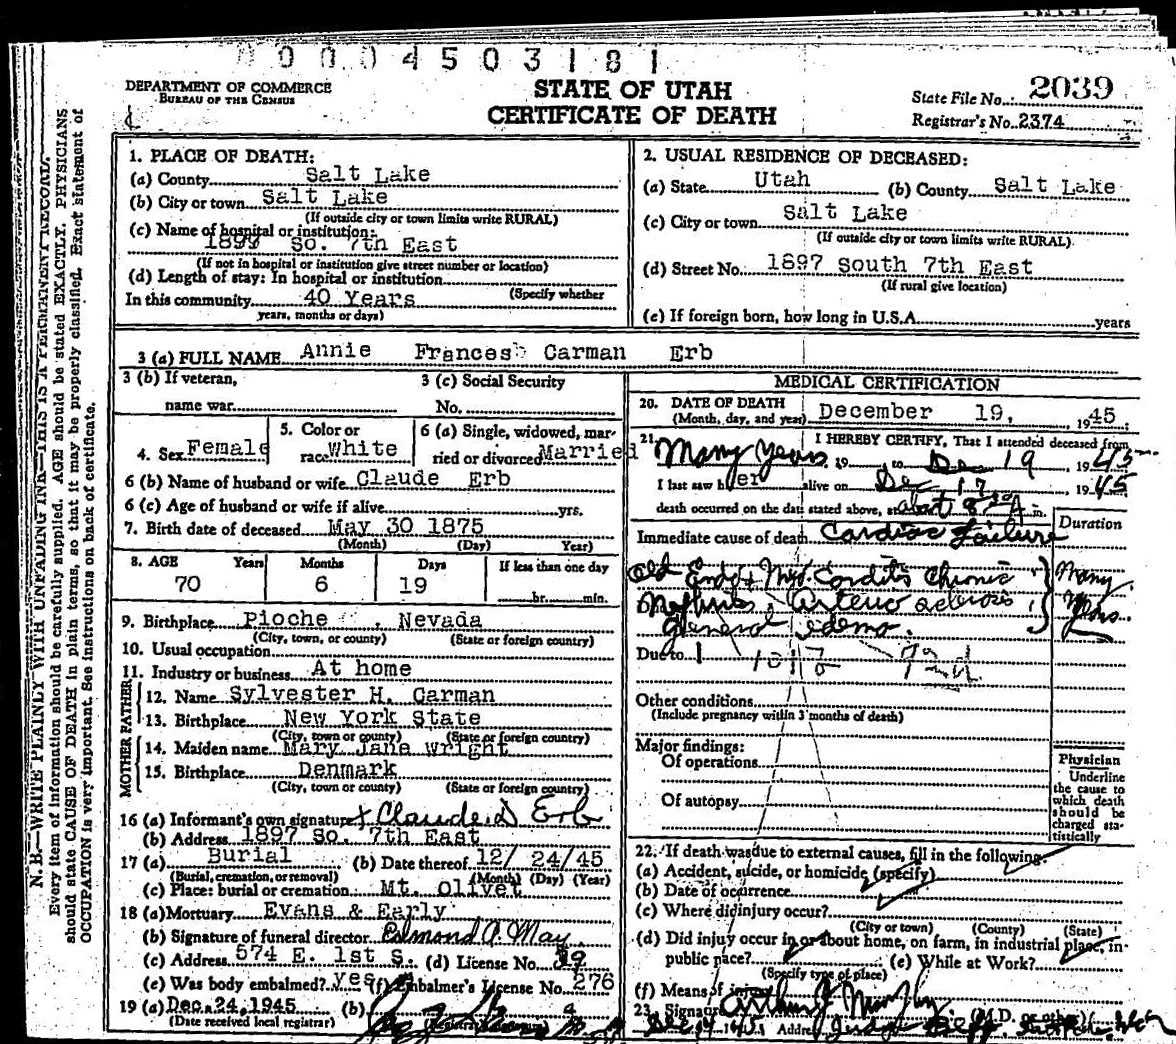 0004503181
DEPARTMENT OF COMMERCE
BUREAU OF THE CENSUS
STATE OF UTAH
CERTIFICATE OF DEATH
State File No. 2039
Registrar's No. 2374
N. B.—WRITE PLAINLY WITH UNFADING INK—THIS IS A PERMANENT RECORD.
Every item of information should be carefully supplied. AGE should be stated EXACTLY. PHYSICIANS
should state CAUSE OF DEATH in plain terms, so that it may be properly classified. Exact statement of
OCCUPATION is very important. See instructions on back of certificate.
1. PLACE OF DEATH:
(a) County Salt Lake
(b) City or town Salt Lake
(If outside city or town limits write RURAL)
(c) Name of hospital or institution:
1899 So. 7th East
(If not in hospital or institution give street number or location)
(d) Length of stay: In hospital or institution
(Specify whether
In this community 40 Years
years, months or days)
2. USUAL RESIDENCE OF DECEASED:
(a) State Utah (b) County Salt Lake
(c) City or town Salt Lake
(If outside city or town limits write RURAL)
(d) Street No. 1897 South 7th East
(If rural give location)
(e) If foreign born, how long in U.S.A. years
3 (a) FULL NAME Annie Frances Carman Erb
3 (b) If veteran,
name war
3 (c) Social Security
No.
4. Sex Female
5. Color or
race White
6 (a) Single, widowed, mar-
ried or divorced Married
6 (b) Name of husband or wife Claude Erb
6 (c) Age of husband or wife if alive yrs.
7. Birth date of deceased May 30 1875
(Month) (Day) (Year)
8. AGE Years Months Days If less than one day
70 6 19 hr. min.
9. Birthplace Pioche, Nevada
(City, town, or county) (State or foreign country)
10. Usual occupation
11. Industry or business At home
FATHER
12. Name Sylvester H. Carman
13. Birthplace New York State
(City, town or county) (State or foreign country)
MOTHER
14. Maiden name Mary Jane Wright
15. Birthplace Denmark
(City, town, or county) (State or foreign country)
16 (a) Informant's own signature x Claude D Erb
(b) Address 1897 So. 7th East
17 (a) Burial (b) Date thereof 12/ 24/45
(Burial, cremation, or removal) (Month) (Day) (Year)
(c) Place: burial or cremation Mt. Olivet
18 (a) Mortuary Evans & Early
(b) Signature of funeral director Edmond P. May
(c) Address 574 E. 1st S. (d) License No. 39
(e) Was body embalmed? yes (f) Embalmer's License No. 276
19 (a) Dec. 24, 1945 (b)
(Date received local registrar)
MEDICAL CERTIFICATION
20. DATE OF DEATH
(Month, day, and year) December 19, 1945
21. I HEREBY CERTIFY, That I attended deceased from
Many Years, 19 to Dec 19, 1945
I last saw her alive on Dec 17, 1945
death occurred on the date stated above, at about 8 A m.
Duration
Immediate cause of death Cardiac Failure
Old Endo & Myo Carditis Chronic
Nephritis, Arterio sclerosis
general edema.
Many
Years
Due to
Other conditions
(Include pregnancy within 3 months of death)
Major findings:
Of operations
Of autopsy
Physician
Underline
the cause to
which death
should be
charged sta-
tistically
22. If death was due to external causes, fill in the following:
(a) Accident, suicide, or homicide (specify)
(b) Date of occurrence
(c) Where did injury occur?
(City or town) (County) (State)
(d) Did injury occur in or about home, on farm, in industrial place, in
public place? (e) While at Work?
(Specify type of place)
(f) Means of injury
23. Signature Arthur J (M.D. or other)
Address Judge Bldg.